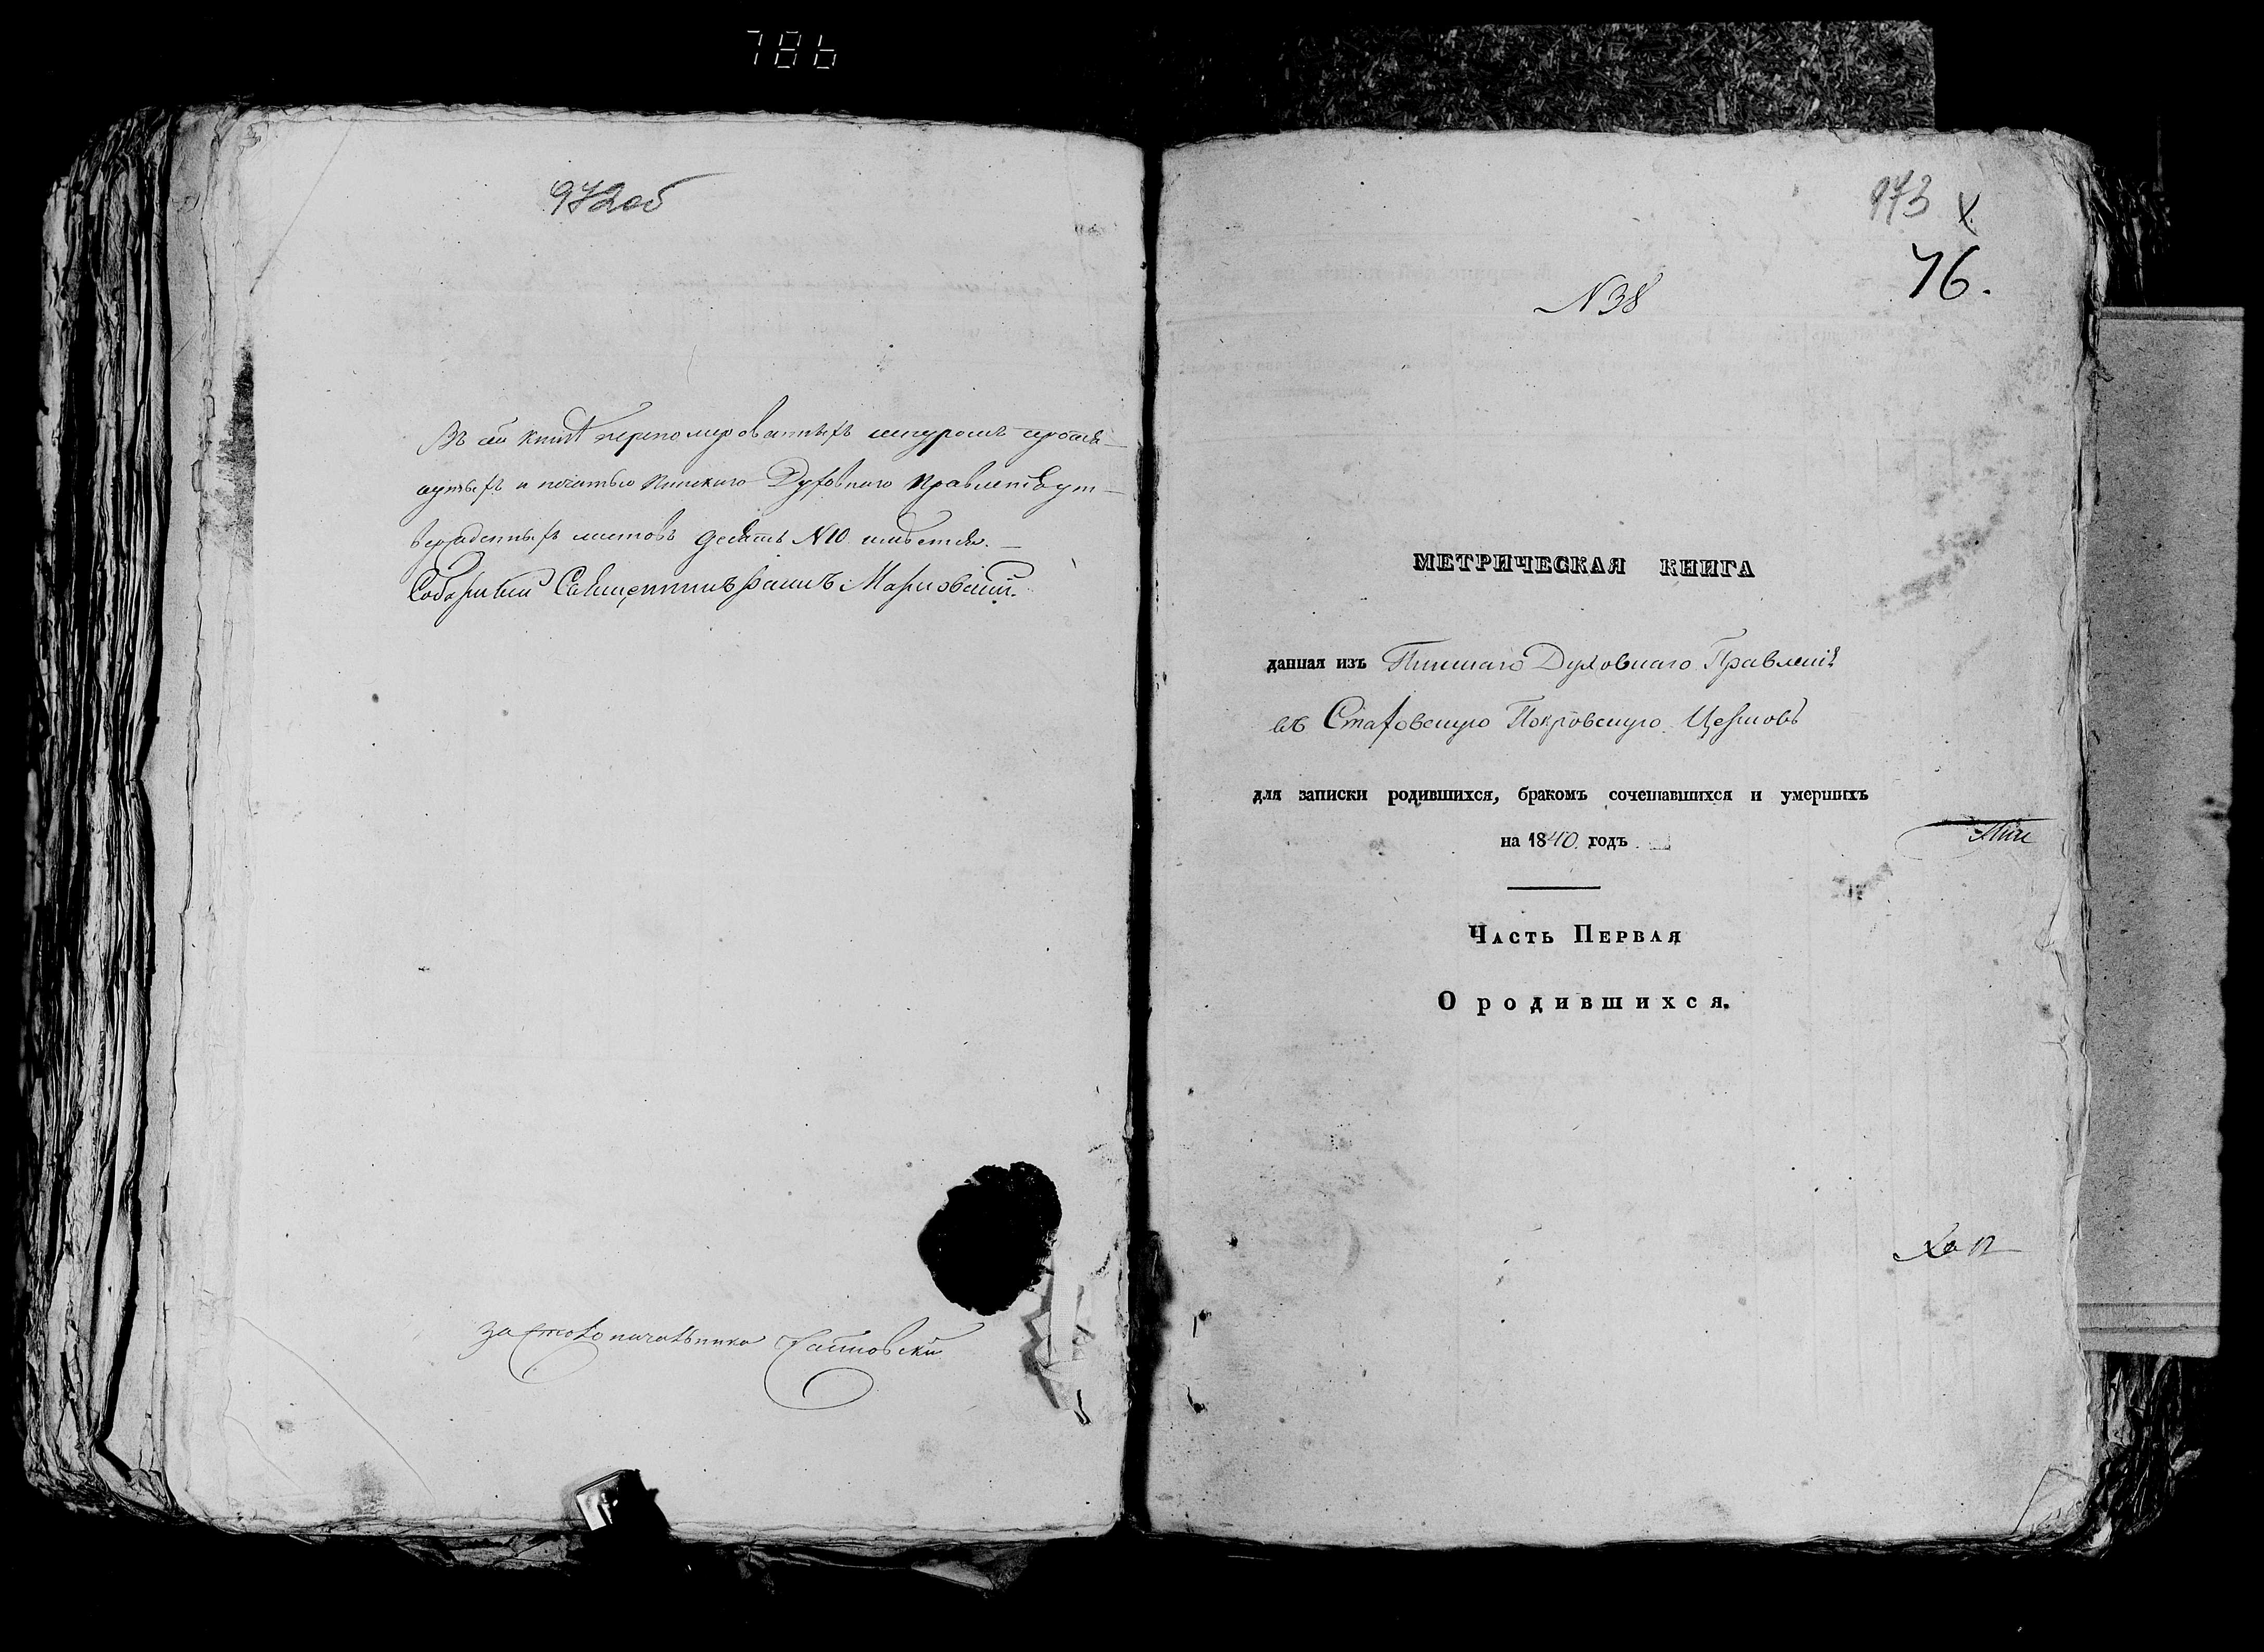 786
972об
Въ сей книгѣ перенумерованныхъ шнуромъ протя-
нутыхъ и печатью Пинскаго Духовнаго Правленія ут-
вержденныхъ листовъ десять N10 имѣется.—
Соборный Священникъ Маріовскій.
за столоначальника
973
76.
N38
МЕТРИЧЕСКАЯ КНИГА
данная изъ Пинскаго Духовнаго Правленія
въ Стаховскую Покровскую Церковь
для записки родившихся, бракомъ сочетавшихся и умершихъ
на 1840 годъ
Часть Первая
О родившихся.